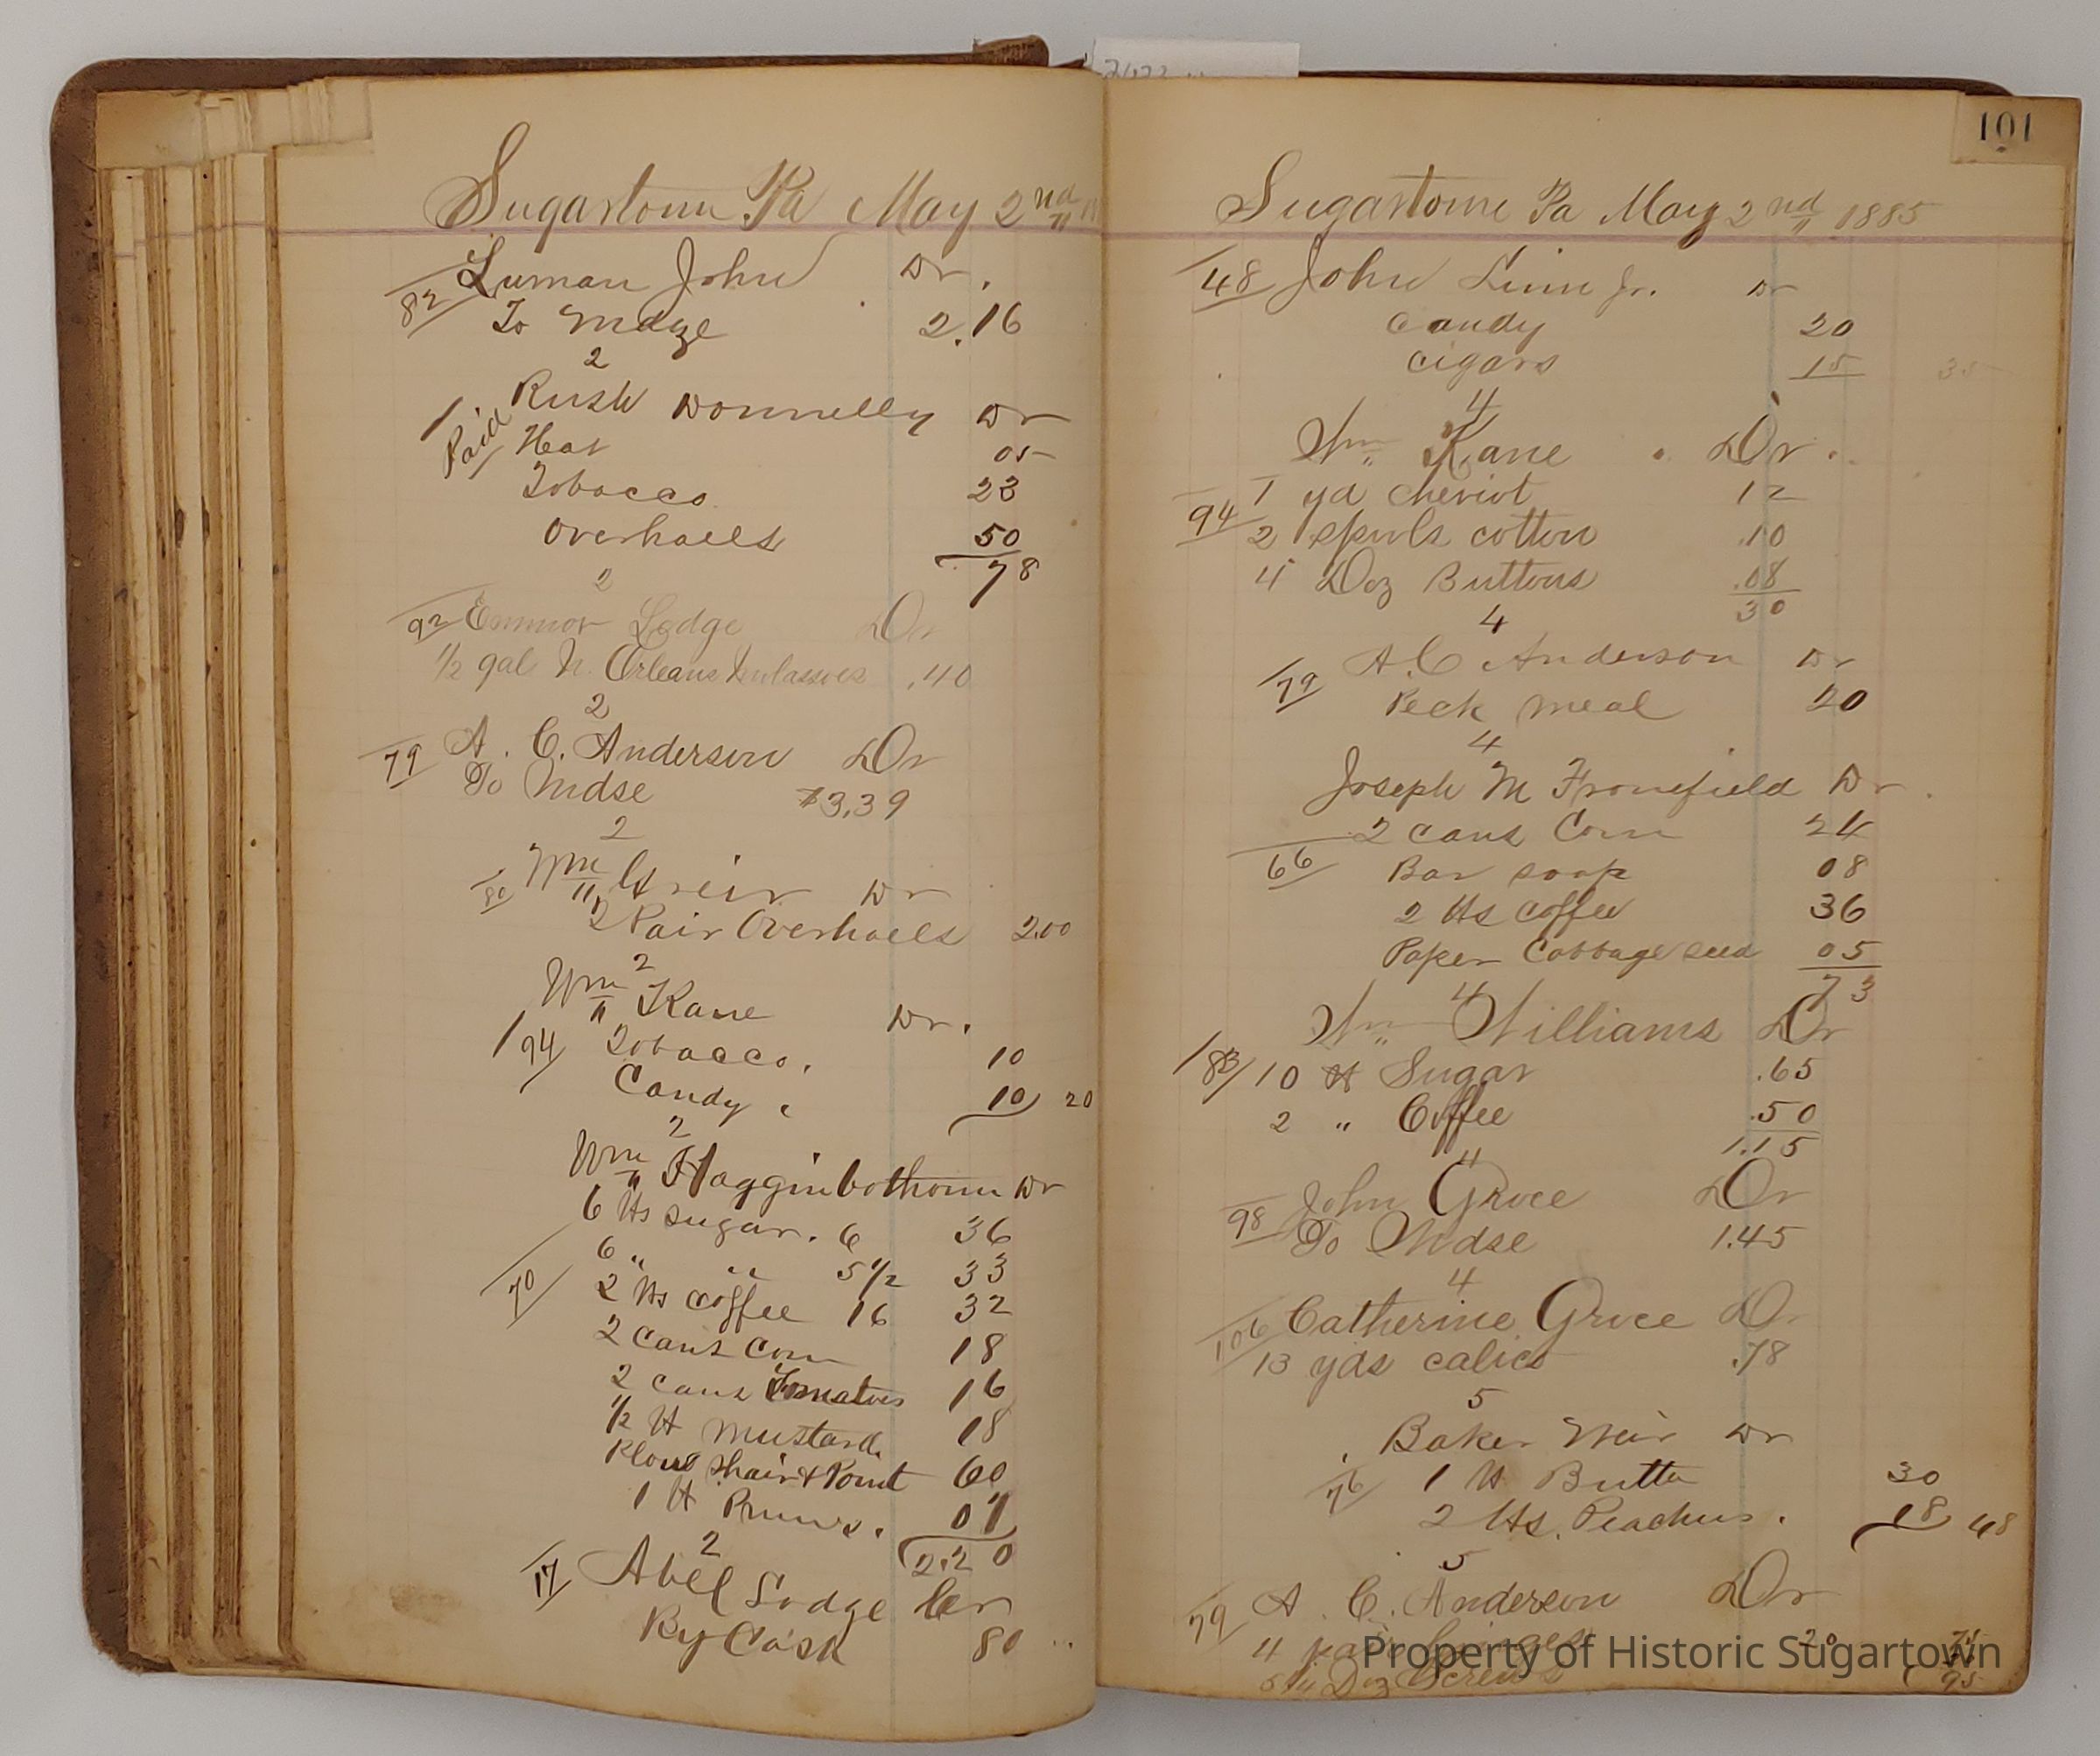 Sugartown Pa May 2nd
82 Luman John Dr.
To Mdze 2.16
2
Rush Donnelly Dr
Paid
05
Tobacco 23
Overhaels 50
78
2
92 Emmor Lodge Dr
1/2 gal N. Orleans Molasses .40
2
79 A. C. Anderson Dr
To Mdse $3.39
2
80 Wm Weir Dr
2 Pair Overhaels 2.00
2
Wm Kane Dr.
94 Tobacco. 10
Candy 10 20
2
Wm Hagginbothom Dr
6 lbs sugar. 6 36
6 " " 5 1/2 33
70 2 lbs coffee 16 32
2 cans Corn 18
2 cans Tomatoes 16
1/2 lb Mustard 18
Plow Shair & Point 60
1 lb Pruns. 07
2.20
2
17 Abel Lodge Cr
By Cash 80
101
Sugartown Pa May 2nd 1885
48 John Linn Jr. Dr
Candy 20
Cigars 15 35
4
Wm Kane Dr.
1 yd cheviot 12
94 2 spools cotton .10
4 Doz Buttons .08
30
4
79 A. C Anderson Dr
Peck meal 20
4
Joseph M Fronefield Dr
2 cans Corn 24
66 Bar soap 08
2 lbs coffee 36
Paper Cabbage seed 05
73
4
Wm Williams Dr
83 10 lb Sugar .65
2 " Coffee .50
1.15
4
98 John Groce Dr
To Mdse 1.45
4
106 Catherine Groce Dr
13 yds calico .78
5
Baker Weir Dr
76 1 lb Butter 30
2 lbs. Peaches. 18 48
5
79 A. C. Anderson Dr
4 pair hinges 20 75
Doz Screws 95
Property of Historic Sugartown